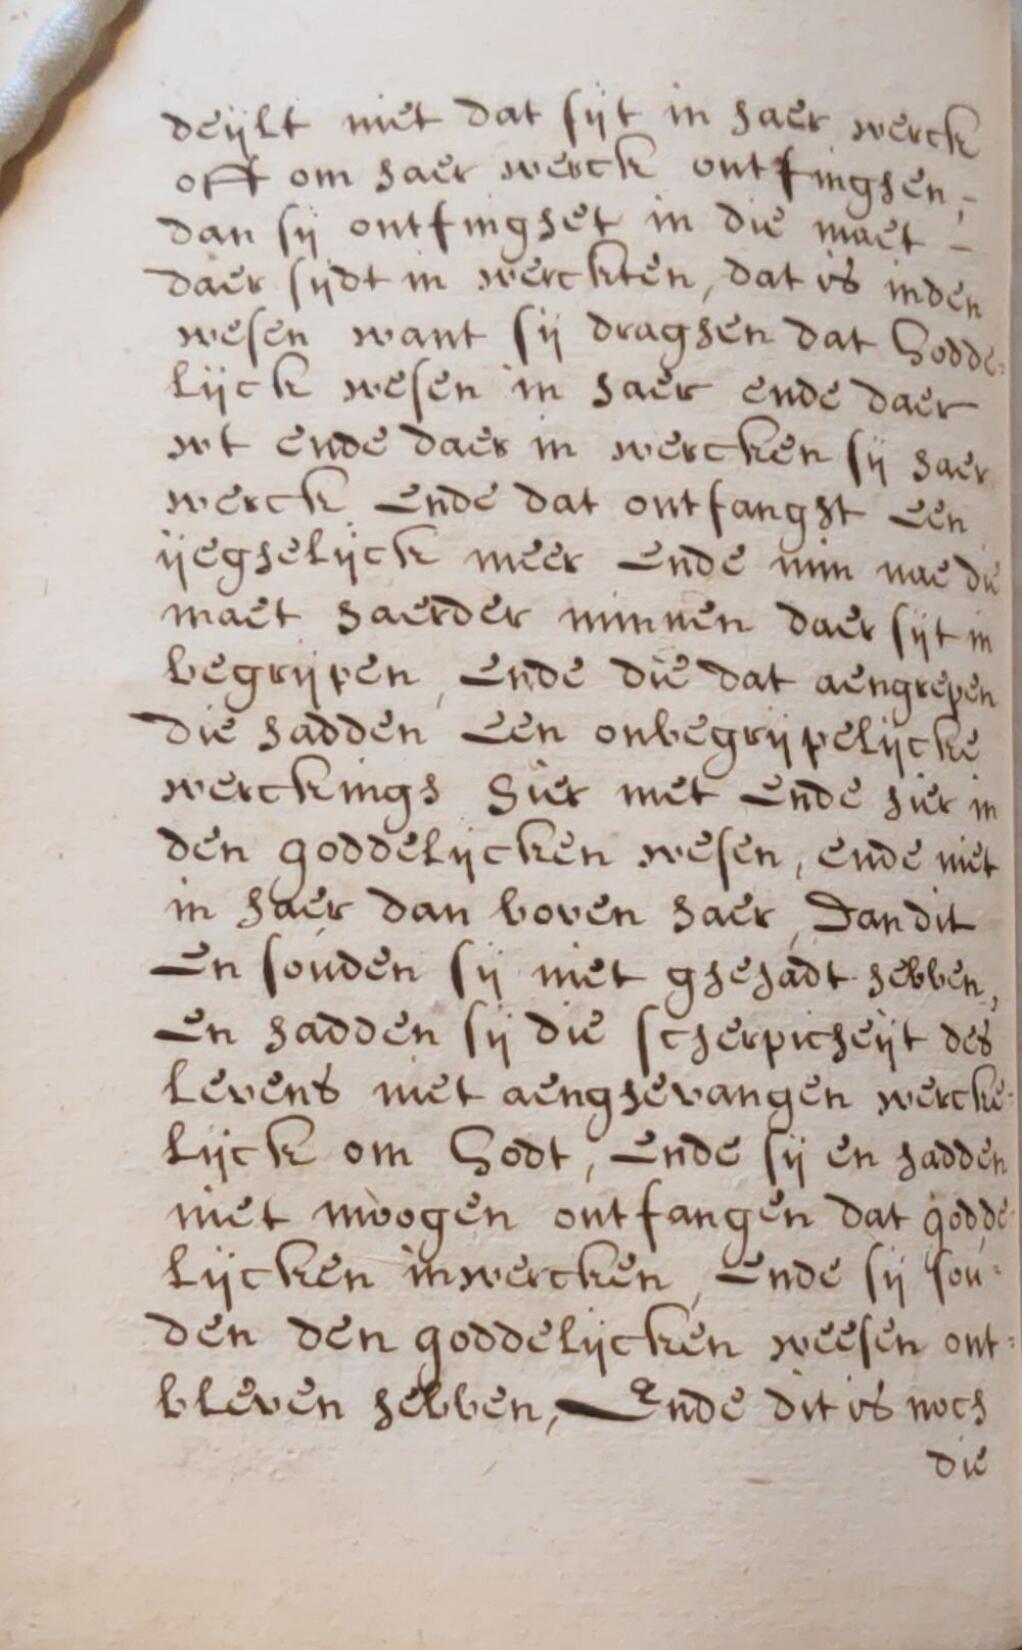 deijlt niet dat sijt in haer werck
offt om haer werck ontfinghen,-
dan sij ontfinghet in die maet -
daer sijdt in werckten, dat is inden
wesen want sij draghen dat Godde-
lijck wesen in haer ende daer
wt ende daer in wercken sij haer
werck Ende dat ontfanght Een
ijeghelijck meer Ende min nae die
maet haerder minnen daer sijt in
begrijpen, Ende die dat aengrepen
die hadden Een onbegrijpelijcke
werckingh hier met Ende hier in
den goddelijcken wesen, ende niet
in haer dan boven haer, Dan dit
En souden sij niet ghehadt hebben,
En hadden sij die scherpicheijt des
levens niet aenghevangen wercke-
lijck om Godt, Ende sij en hadden
niet moogen ontfangen dat godde-
lijcken inwercken, Ende sij sou-
den den goddelijcken weesen ont-
bleven hebben, Ende dit is noch
die